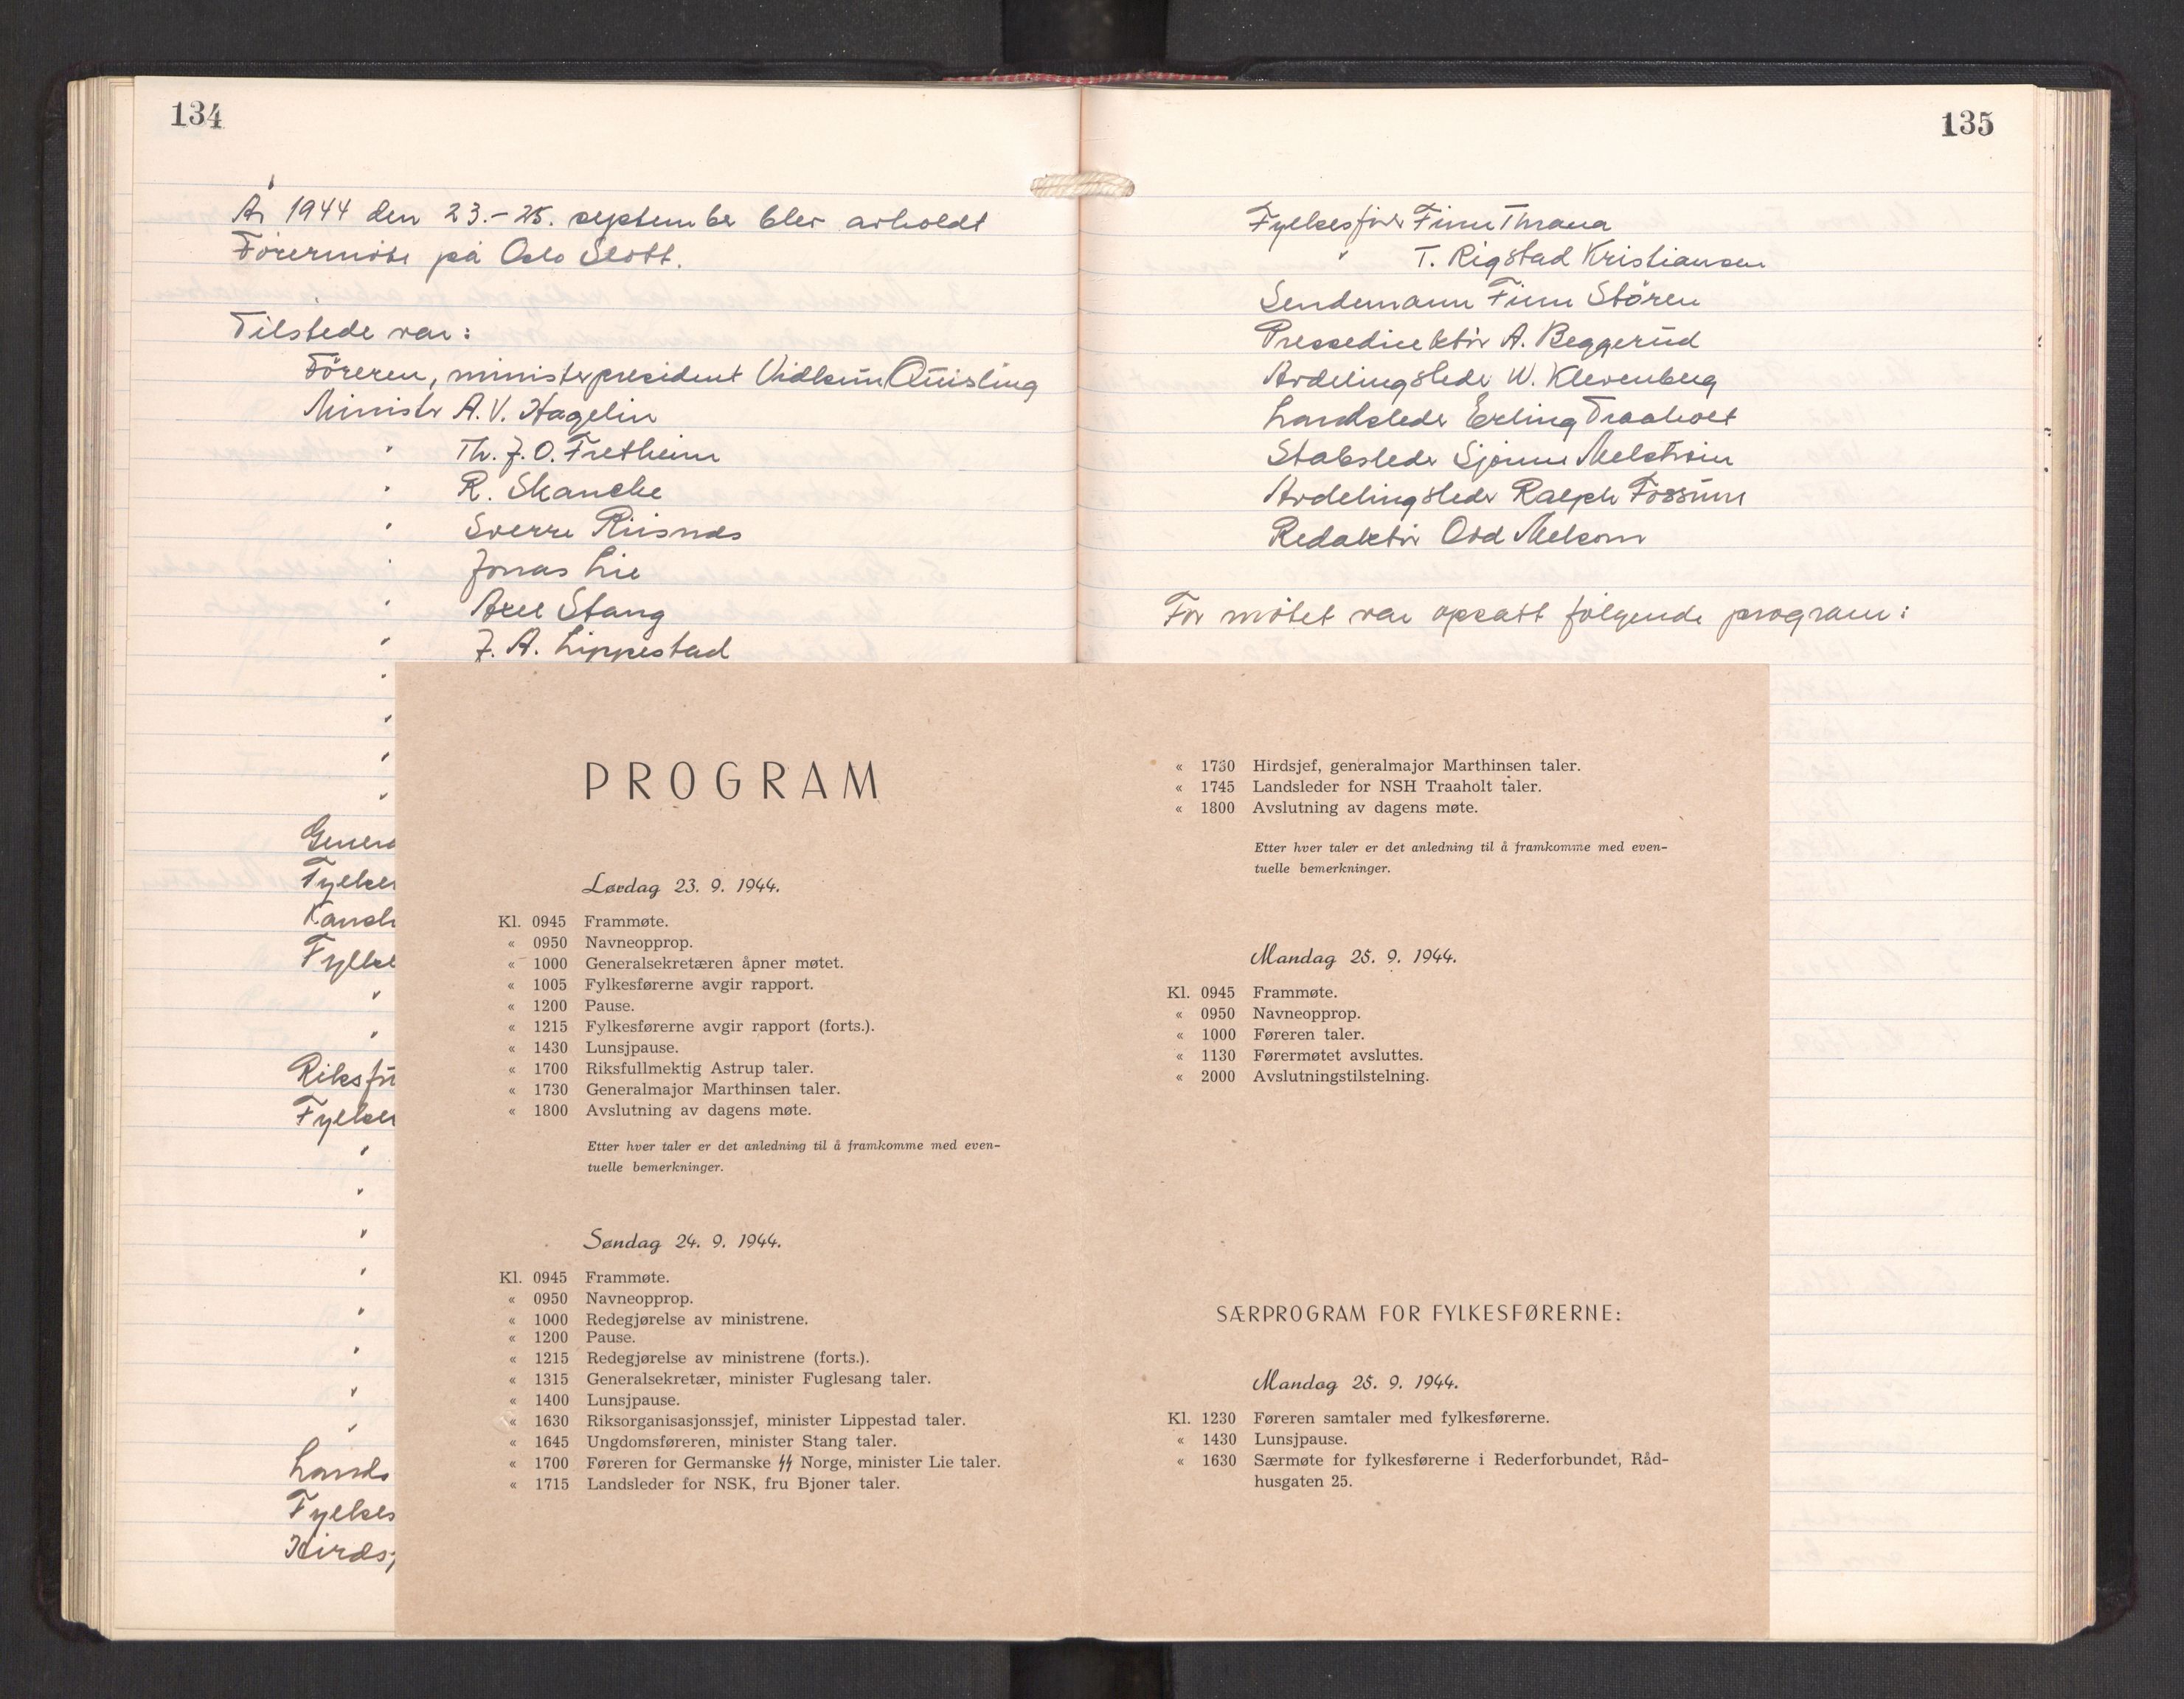 134
År 1944 den 23.-25. september blev avholdt
Førermøte på Oslo Slott.
Tilstede var:
Föreren, ministerpresident Vidkun Quisling
Minister A. V. Hagelin
" Th. J. O. Fretheim
" R. Skancke
" Sverre Riisnæs
" Jonas Lie
" Axel Stang
" J. A. Lippestad
"
"
"
"
Genera
Fylkes
Fylke
"
"
Riksfu
Fylkes
"
"
"
"
"
"
"
"
Lands
Fylkes
Hirdsj
PROGRAM
Lørdag 23. 9. 1944.
Kl. 0945 Frammøte.
« 0950 Navneopprop.
« 1000 Generalsekretæren åpner møtet.
« 1005 Fylkesførerne avgir rapport.
« 1200 Pause.
« 1215 Fylkesførerne avgir rapport (forts.).
« 1430 Lunsjpause.
« 1700 Riksfullmektig Astrup taler.
« 1730 Generalmajor Marthinsen taler.
« 1800 Avslutning av dagens møte.
Etter hver taler er det anledning til å framkomme med even-
tuelle bemerkninger.
Søndag 24. 9. 1944.
Kl. 0945 Frammøte.
« 0950 Navneopprop.
« 1000 Redegjørelse av ministrene.
« 1200 Pause.
« 1215 Redegjørelse av ministrene (forts.).
« 1315 Generalsekretær, minister Fuglesang taler.
« 1400 Lunsjpause.
« 1630 Riksorganisasjonssjef, minister Lippestad taler.
« 1645 Ungdomsføreren, minister Stang taler.
« 1700 Føreren for Germanske ᛋᛋ Norge, minister Lie taler.
« 1715 Landsleder for NSK, fru Bjoner taler.
135
Fylkesfører Finn Thrana
" T. Rigstad Kristiansen
Sendemann Finn Stören
Pressedirektør A. Beggerud
Avdelingsleder W. Klevenberg
Landsleder Erling Traaholt
Stabsleder Sjønne Melstrøm
Avdelingsleder Ralph Fossum
Redaktör Odd Melsom
For møtet var opsatt følgende program:
« 1730 Hirdsjef, generalmajor Marthinsen taler.
« 1745 Landsleder for NSH Traaholt taler.
« 1800 Avslutning av dagens møte.
Etter hver taler er det anledning til å framkomme med even-
tuelle bemerkninger.
Mandag 25. 9. 1944.
Kl. 0945 Frammøte.
« 0950 Navneopprop.
« 1000 Føreren taler.
« 1130 Førermøtet avsluttes.
« 2000 Avslutningstilstelning.
SÆRPROGRAM FOR FYLKESFØRERNE:
Mandag 25. 9. 1944.
Kl. 1230 Føreren samtaler med fylkesførerne.
« 1430 Lunsjpause.
« 1630 Særmøte for fylkesførerne i Rederforbundet, Råd-
husgaten 25.